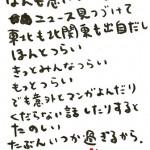 ニュース見つづけて
東北も北関東も出自だし
ほんとつらい
きっとみんなつらい
もっとつらい
でも意外とマンガよんだり
くだらない話したりすると
たのしい
たぶんいつか過ぎるから。